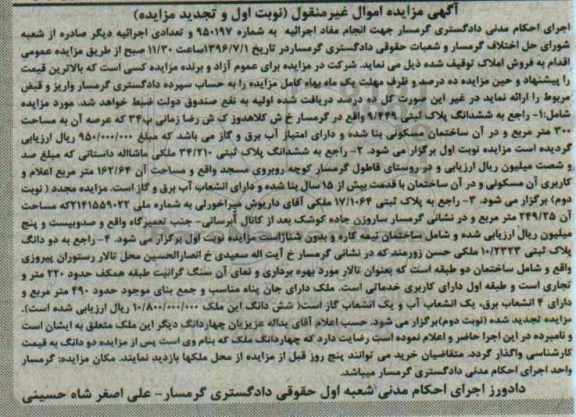 آگهی مزایده اموال غیرمنقول (نوبت اول و تجدید مزایده)
اجرای احکام مدنی دادگستری گرمسار جهت انجام مفاد اجرائیه به شماره ۹۵۰۱۹۷ و تعدادی اجرائیه دیگر صادره از شعبه
شورای حل اختلاف گرمسار و شعبات حقوقی دادگستری گرمساردر تاریخ ۱۳۹۶/۷/۱ساعت ۱۱/۳۰ صبح از طریق مزایده عمومی
اقدام به فروش املاک توقیف شده ذیل می نماید. شرکت در مزایده برای عموم آزاد و برنده مزایده کسی است که بالاترین قیمت
را پیشنهاد و حین مزایده ده درصد و ظرف مهلت یک ماه بهاء کامل مزایده را به حساب سپرده دادگستری گرمسار واریز و قبض
مربوط را ارائه نماید در غیر این صورت کل ده درصد دریافت شده اولیه به نفع صندوق دولت ضبط خواهد شد. مورد مزایده
شامل:۱- راجع به ششدانگ پلاک ثبتی ۹/۴۴۹ واقع در گرمسار خ ش کلاهدوز ک ش رضا زمانی پ۳۴ که عرصه آن به مساحت
۳۰۰ متر مربع و در آن ساختمان مسکونی بنا شده و دارای امتیاز آب برق و گاز می باشد که مبلغ ۹۵۰/۰۰۰/۰۰۰ ریال ارزیابی
گردیده است مزایده نوبت اول برگزار می شود. ۲- راجع به ششدانگ پلاک ثبتی ۳۴/۲۱۰ ملکی ماشااله داستانی که مبلغ صد
و شصت میلیون ریال ارزیابی و در روستای قاطول گرمسار کوچه روبروی مسجد واقع و مساحت آن ۱۶۲/۶۴ متر مربع اعلام و
کاربری آن مسکونی و در آن ساختمان با قدمت بیش از ۱۵ سال بنا شده و دارای انشعاب آب برق و گاز است. مزایده مجدد (نوبت
دوم) برگزار می شود. ۳- راجع به پلاک ثبتی ۱۷/۱۰۶۴ ملکی آقای داریوش میراخورلی به شماره ملی ۲۱۴۱۵۵۹۰۲۲که مساحت
آن ۲۴۹/۲۵ متر مربع و در نشانی گرمسار ساروزن جاده کوشک بعد از کانال آبرسانی- جنب تعمیرگاه واقع و صدوبیست و پنج
میلیون ریال ارزیابی شده و شامل ساختمان نیمه کاره و بدون شناژاست مزایده نوبت اول برگزار می شود. ۴- راجع به دو دانگ
پلاک ثبتی ۱۰/۲۳۲۳ ملکی حسن زورمند که در نشانی گرمسار خ آیت اله سعیدی خ انصارالحسین محل تالار رستوران پیروزی
واقع و شامل ساختمان دو طبقه است که بعنوان تالار مورد بهره برداری و نمای آن سنگ گرانیت طبقه همکف حدود ۲۲۰ متر و
تجاری است و طبقه اول دارای کاربری خدماتی است. ملک دارای جان پناه مناسب و جمع بنای موجود حدود ۴۹۰ متر مربع و
دارای ۴ انشعاب برق، یک انشعاب آب و یک انشعاب گاز است( شش دانگ این ملک ۱۰/۸۰۰/۰۰۰/۰۰۰ ریال ارزیابی شده است).
مزایده تجدید شده (نوبت دوم)برگزار می شود. حسب اعلام آقای یداله عزیزیان چهاردانگ دیگر این ملک متعلق به ایشان است
و نامبرده در این اجرا حاضر و اعلام نموده است رضایت دارد که چهاردانگ ملک که بنام وی است پس از مزایده دو دانگ به قیمت
کارشناسی واگذار گردد. متقاضیان خرید می توانند پنج روز قبل از مزایده از محل ملکها بازدید نمایند. مکان مزایده: گرمسار
واحد اجرای احکام مدنی دادگستری گرمسار میباشد.
دادورز اجرای احکام مدنی شعبه اول حقوقی دادگستری گرمسار- علی اصغر شاه حسینی